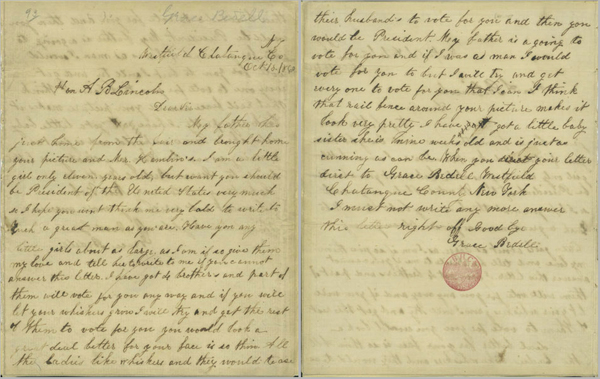 Grace Bedell
NY
Westfield Chatauque Co
Oct 15 1860
Hon A B Lincoln
Dear Sir
My father has
just home from the fair and brought home
your picture and Mr. Hamlin's. I am a little
girl only eleven years old, but want you should
be President of the United States very much
so I hope you wont think me very bold to write to
such a great man as you are. Have you any
little girls about as large as I am if so give them
my love and tell her to write to me if you cannot
answer this letter. I have got 4 brothers and part of
them will vote for you any way and if you will
let your whiskers grow I will try and get the rest
of them to vote for you you would look a
great deal better for your face is so thin. All
the ladies like whiskers and they would tease
their husband's to vote for you and then you
would be President. My father is a going to
vote for you and if I was a man I would
vote for you to but I will try and get
every one to vote for you that I can I think
that rail fence around your picture makes it
look very pretty I have got a little baby
sister she is nine weeks old and is just as
cunning as can be. When you direct your letter
direct to Grace Bedell Westfield
Chatauque County New York
I must not write any more answer
this letter right off Good bye
Grace Bedell